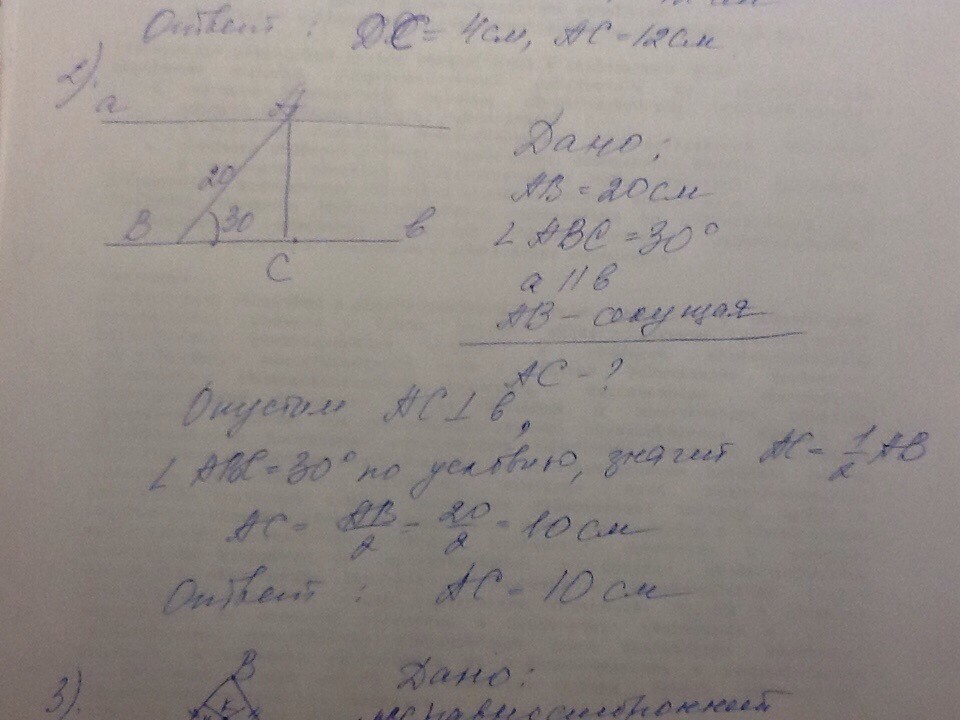 Ответ : DC = 4см, AC = 12см
2).
a A
20
B 30 в
C
Дано :
AB = 20см
∠ ABC = 30°
a || в
AB - секущая
AC - ?
Опустим AC ⊥ в,
∠ ABC = 30° по условию, значит AC = 1/2 AB
AC = AB/2 = 20/2 = 10 см
Ответ : AC = 10 см
3). B Дано :